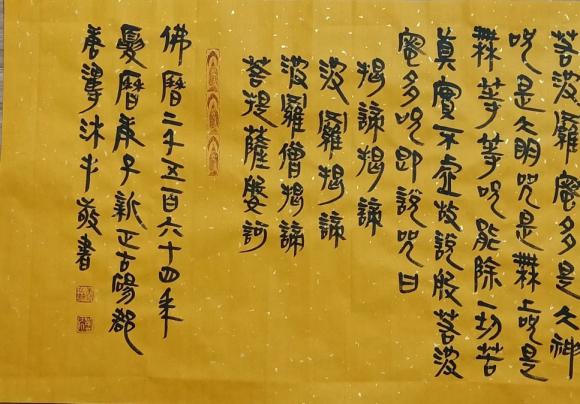 若波羅蜜多是大神
呪是大明呪是無上呪是
無等等呪能除一切苦
真實不虛故說般若波
蜜多呪即說呪曰
揭諦揭諦
波羅揭諦
波羅僧揭諦
菩提薩婆訶
佛曆二千五百六十四年
夏曆庚子新正古碭郡
沐手敬書